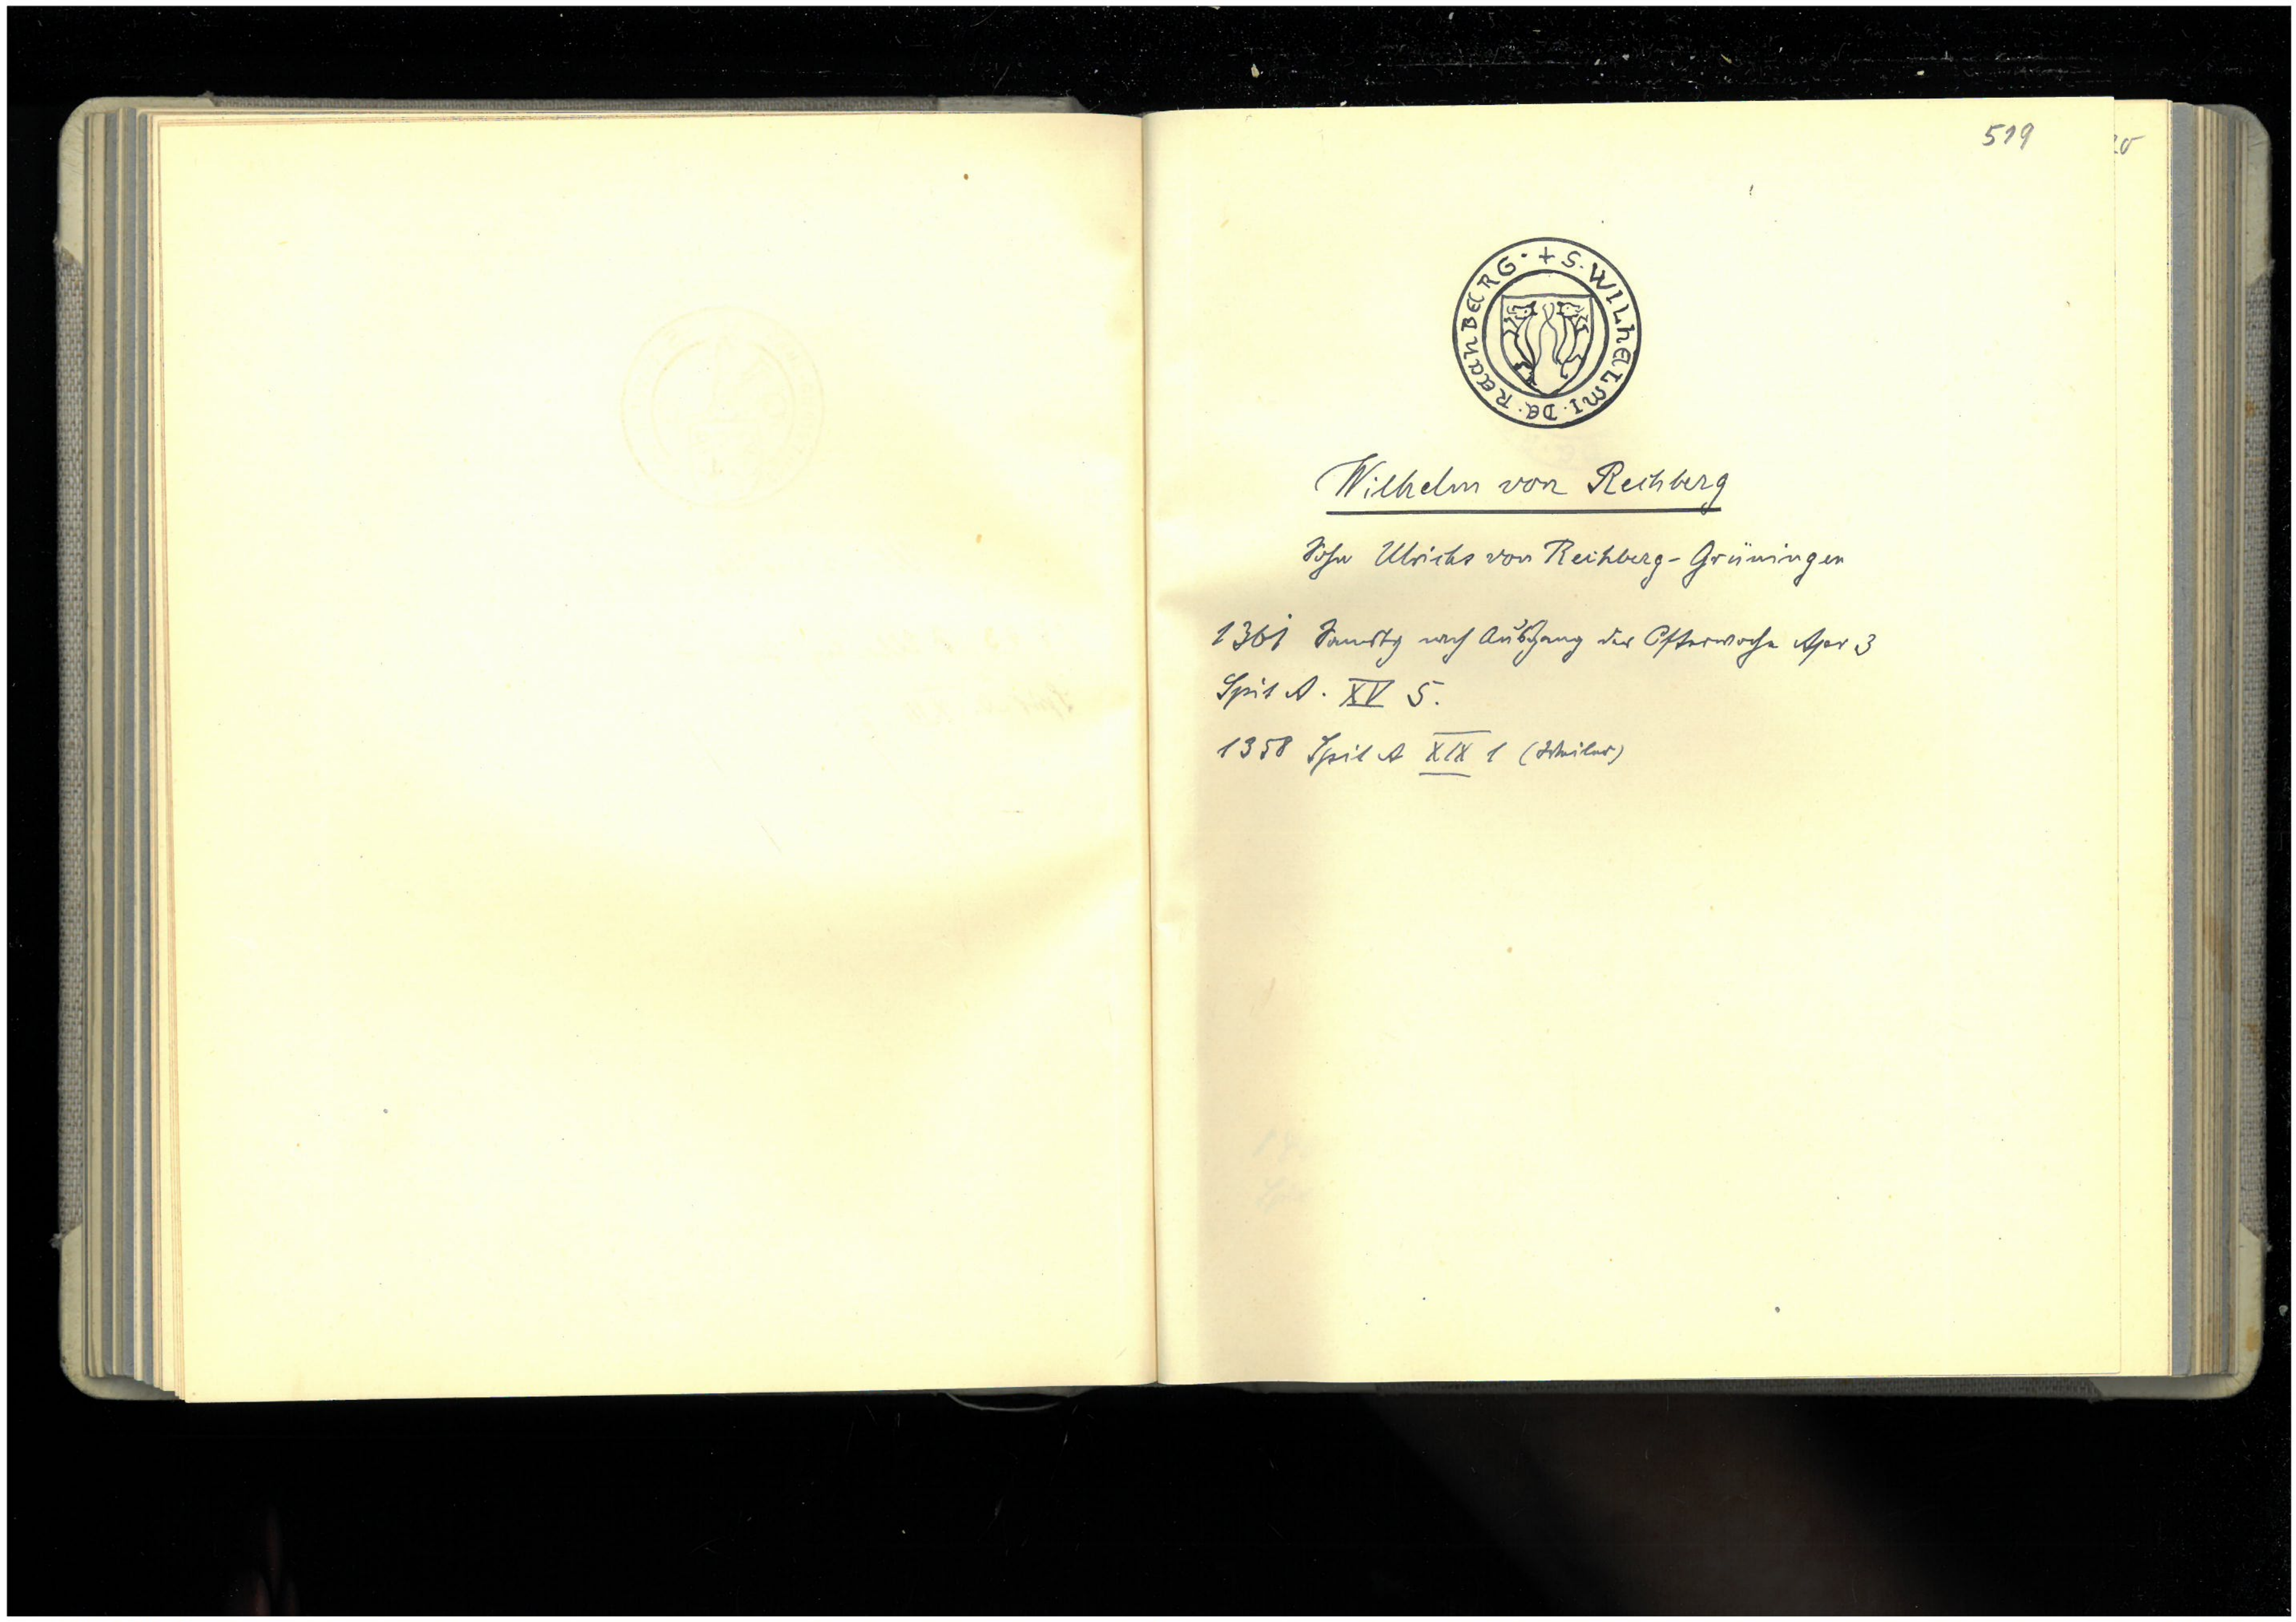 519
20
+ S. WILHELMI. DE. RECHBERG.
Wilhelm von Rechberg
Sohn Ulrichs von Rechberg-Grüningen
1361 Samstg nach Ausgang der Osterwoche Apr 3
Spit A. XV 5.
1358 Spit A XIX 1 (Weiler)